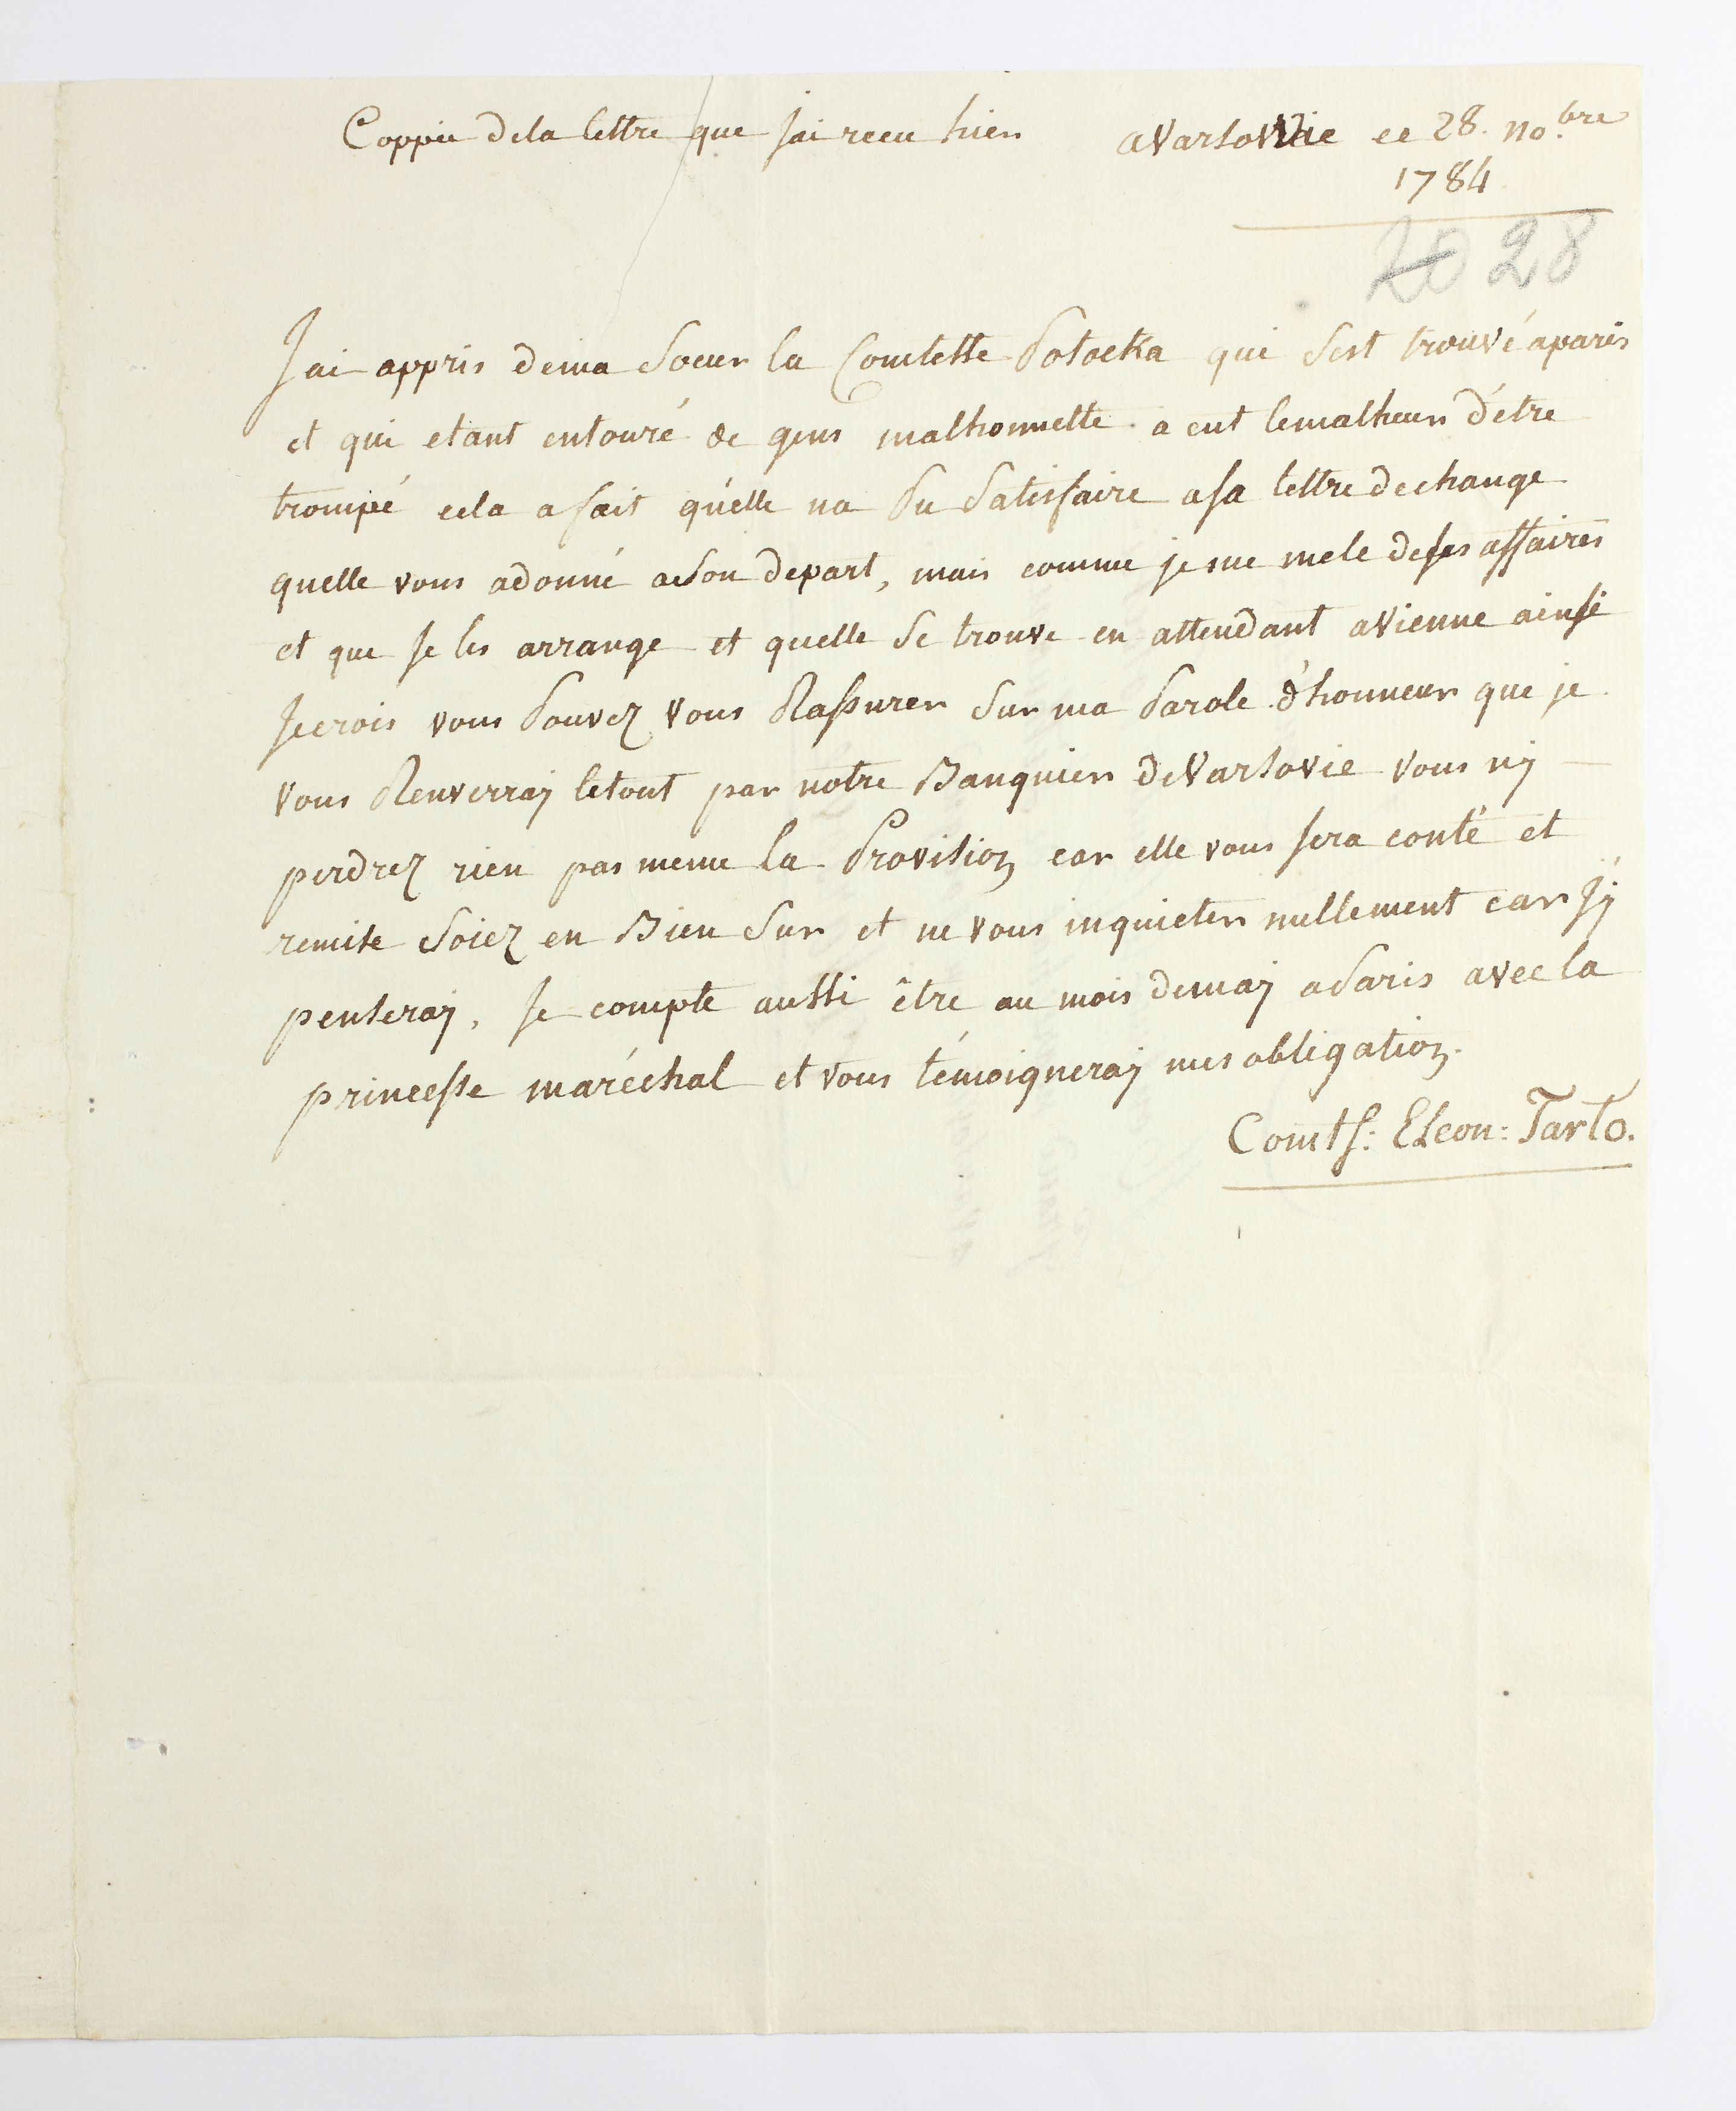 Coppie dela lettre que jai receu hier avarsovie ce 28. no.bre
1784
20 28
Jai appris dema Soeur la Comtesse Potocka qui Sest trouvé aparis
et qui etant entouré de gens malhonnette a eut lemalheur d'être
trompé cela a fait qu'elle na Pu Satisfaire asa lettre dechange
quelle vous adonné aSon depart, mais comme je me mele deses affaires
et que Je les arrange et quelle Se trouve en attendant aVienne ainsi
Jecrois vous Pouvez vous Rassurer Sur ma Parole d'honneur que je
vous Renverraÿ letout par notre Banquier deVarsovie vous nÿ
perdrez rien pas meme la Provision car elle vous sera conté et
remise Soiez en Bien Sur et ne vous inquieter nullement car Jÿ
penseraÿ, Je compte aussi être au mois demaÿ aParis avec la
princesse maréchal et vous témoigneraÿ mes obligation.
Comts: Eleon: Tarlo.